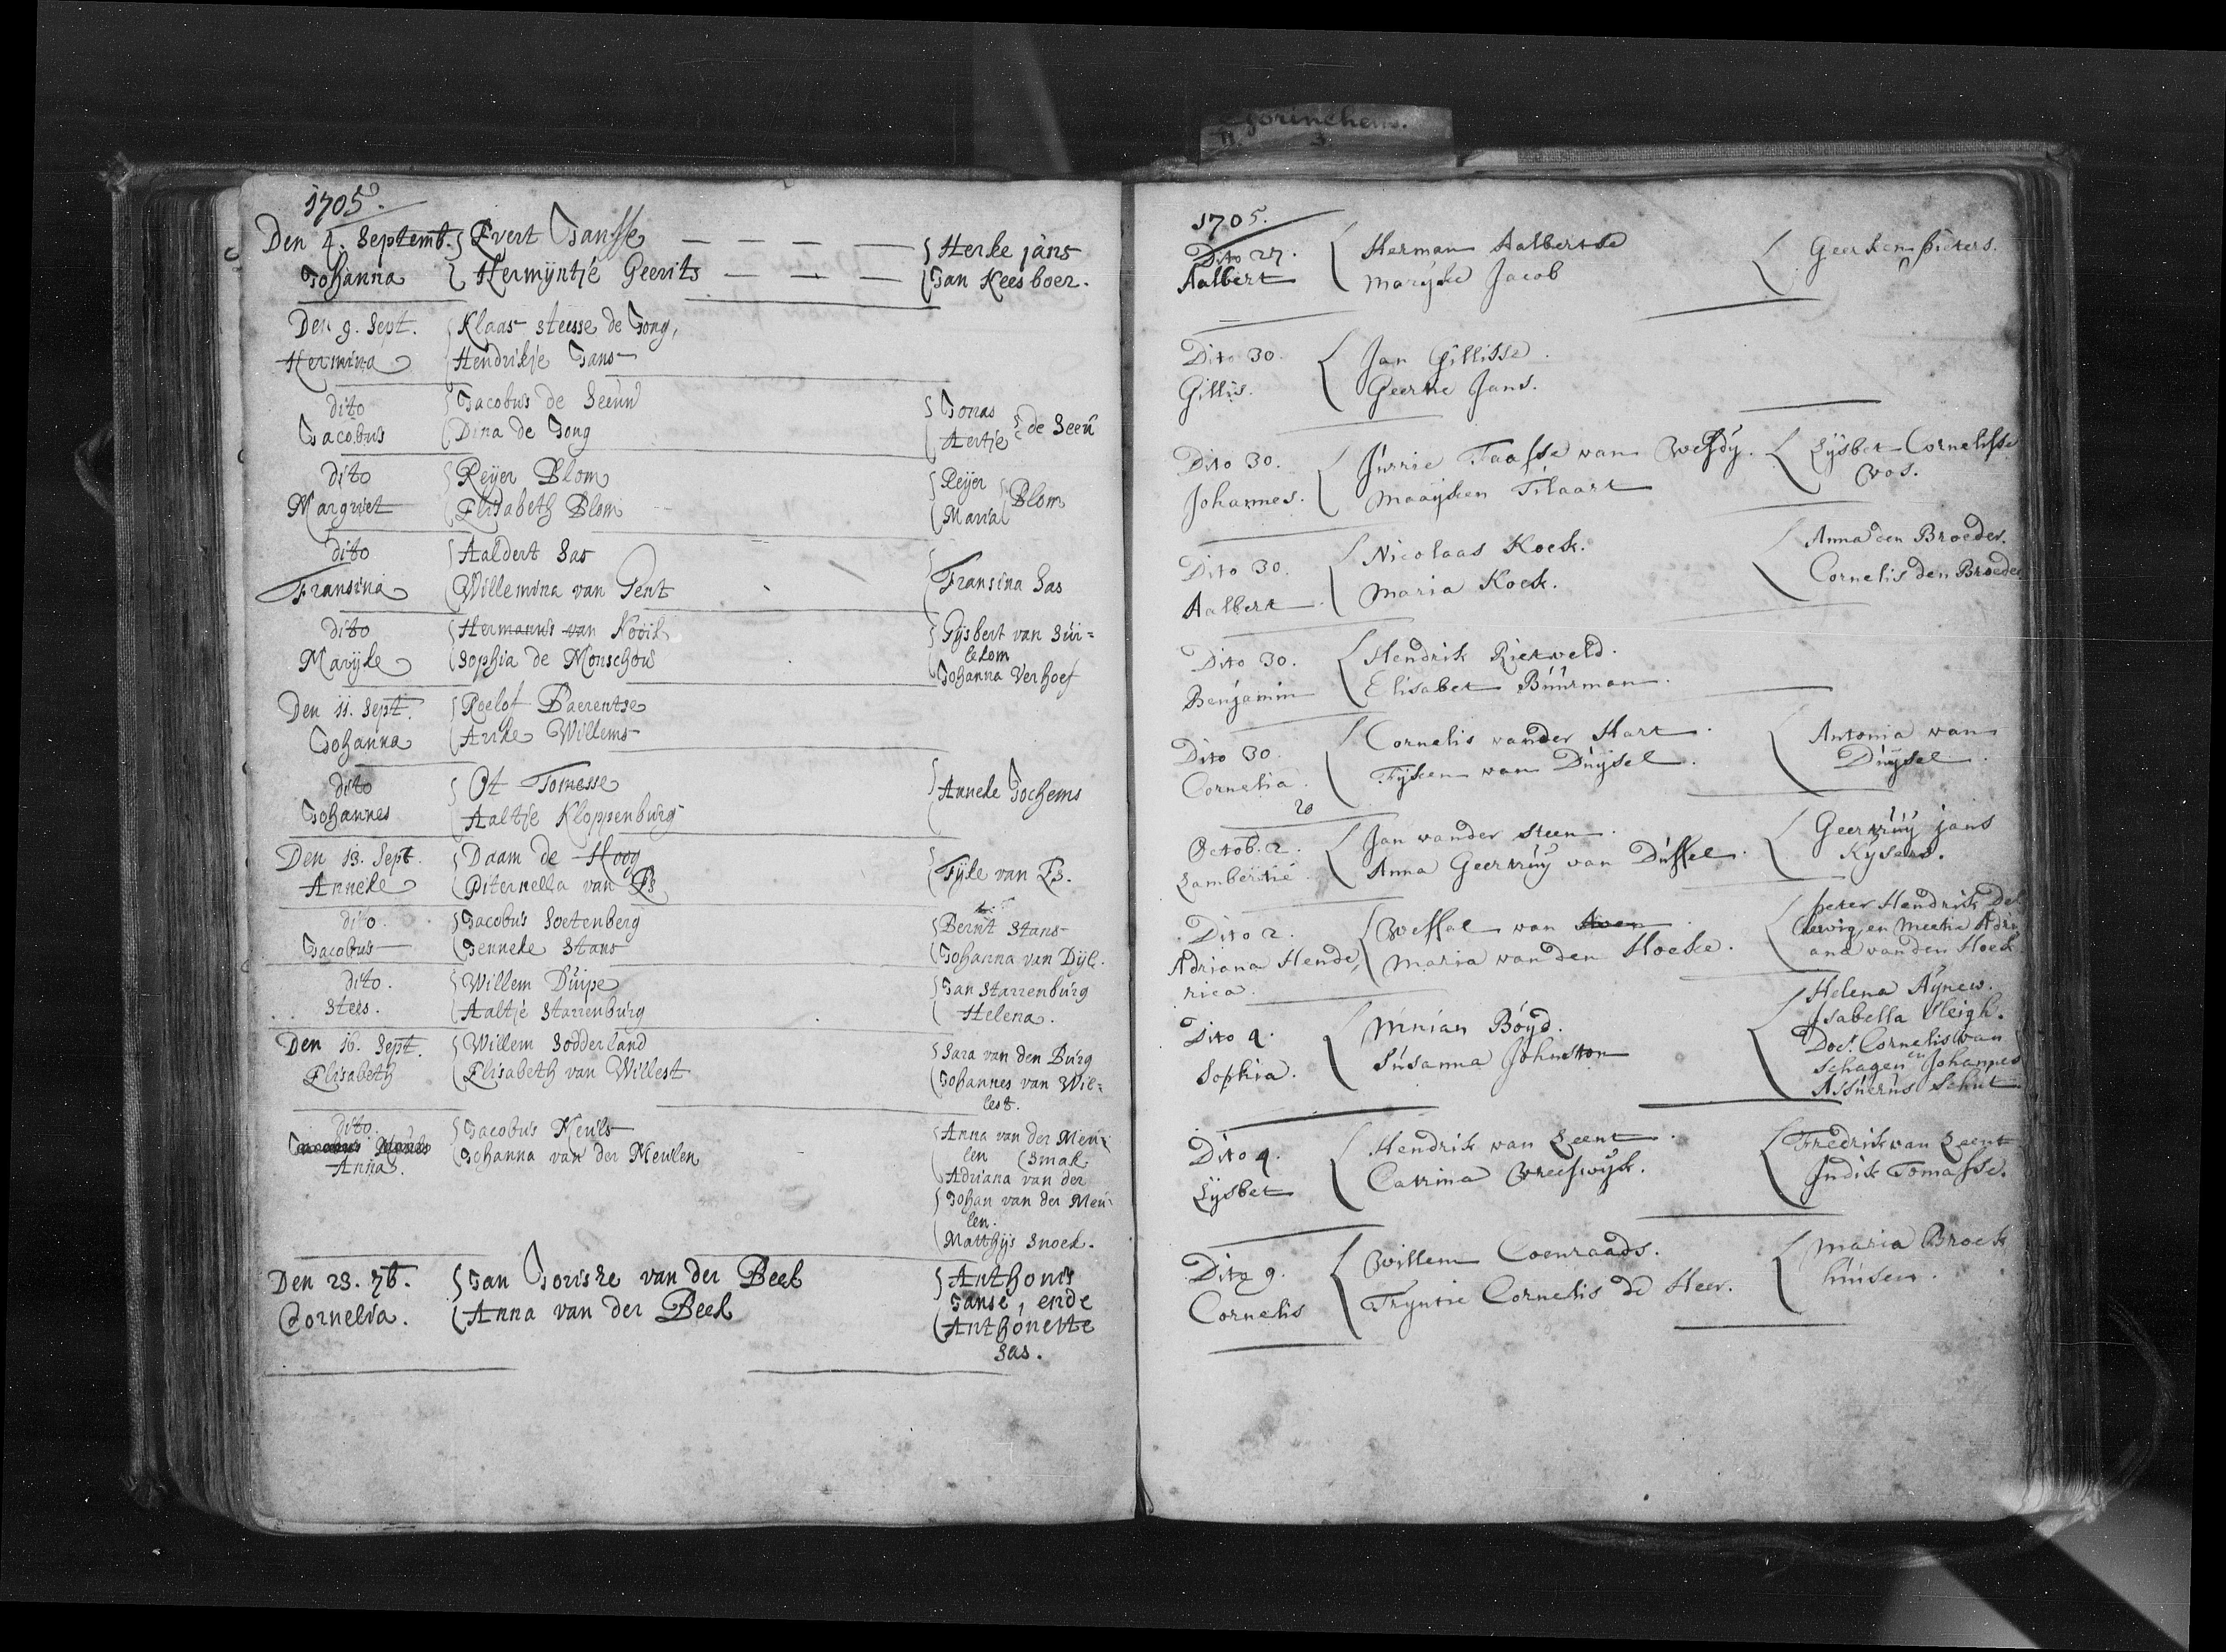 Gorinchem.
11. 3.
1705.
Den 4. Septemb. Evert Jansse — — — — Herke jans
Johanna Hermÿntje Geerits — — — Jan Keesboer.
Den 9. Sept. Klaas steesse de Jong,
Hermina Hendrikje Jans
dito Jacobus de Seeuw Jonas
Jacobus Dina de Jong Aertje de Seeu
dito Reÿer Blom Reÿer
Margriet Elisabeth Blom Maria Blom
dito Aaldert Sas
Fransina Willemina van Gent Fransina Sas
dito Hermanus van Kooik Gÿsbert van Sui=
Marÿke Sophia de Monschou lekom
Johanna Verhoef
Den 11. Sept. Roelof Baerentse
Johanna Anke Willems
dito Ot Tomesse
Johannes Aaltje Kloppenburg Anneke Jochems
Den 13. Sept. Daam de Hoog
Anneke Piternella van Es Fÿke van Es.
dito. Jacobus Soetenberg Bernt Stans
Jacobus Jenneke Stans Johanna van Dÿk.
dito. Willem Duipe Jan Starrenburg
Stees. Aaltje Starrenburg Helena.
Den 16. Sept. Willem Sodderland Sara van den Burg
Elisabeth Elisabeth van Willest Johannes van Wil=
lest.
dito. Jacobus Meuls Anna van der Meu=
Johanna van der Meulen len Smak
Anna. Adriana van der
Johan van der Meu=
len.
Matthÿs Snoek.
Den 23. 7b. Jan Joriske van der Beek Anthonis
Cornelia. Anna van der Beek Janse, ende
Anthonette
Sas.
1705.
Dito 27. Herman Aalbertse Geerken pieters.
Aalbert Marÿke Jacob
Dito 30. Jan Gillisse.
Gillis. Geerke Jans.
Dito 30. Jurrie Faasse van Lÿsbet Cornelisse
Johannes. Maaÿken Tilaart Vos.
Dito 30. Nicolaas Koek. Anna den Broeder.
Aalbert. Maria Koek. Cornelis den Broeder
Dito 30. Hendrik Rietveld.
Benjamin Elisabet Buurman.
Dito 30. Cornelis vander Hart. Antonia van
Cornelia. Fÿken van Duÿsel. Duÿsel.
Octob. 2. Jan vander Steen. Geertruÿ jans
Lambertie. Anna Geertruÿ van Dussel. Kÿsers.
Dito 2. Wessel van peter Hendrik
Adriana Hende, Maria van den Hoeke. en Meetie Adri
rica. ana van den Hoek
Dito 4. Ninian Boÿd. Helena
Sophia. Susanna Johnston Isabella Vleigh.
Doct. Cornelis van
Schagen en Johannes
Assuerus Schut
Dito 4. Hendrik van Leent. Fredrik van Leent
Lÿsbet Catrina Vreeswÿk. Judik Tomasse.
Dito 9. Willem Coenraads. Maria Broek
Cornelis Trÿntie Cornelis de Heer. huisen.